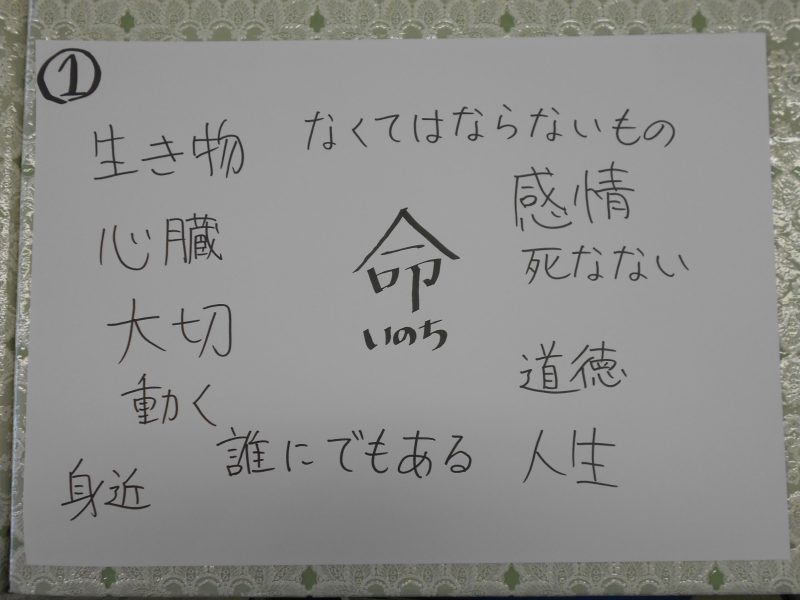 ①
なくてはならないもの
生き物
感情
心臓
命
死なない
大切
いのち
道徳
動く
誰にでもある
人生
身近